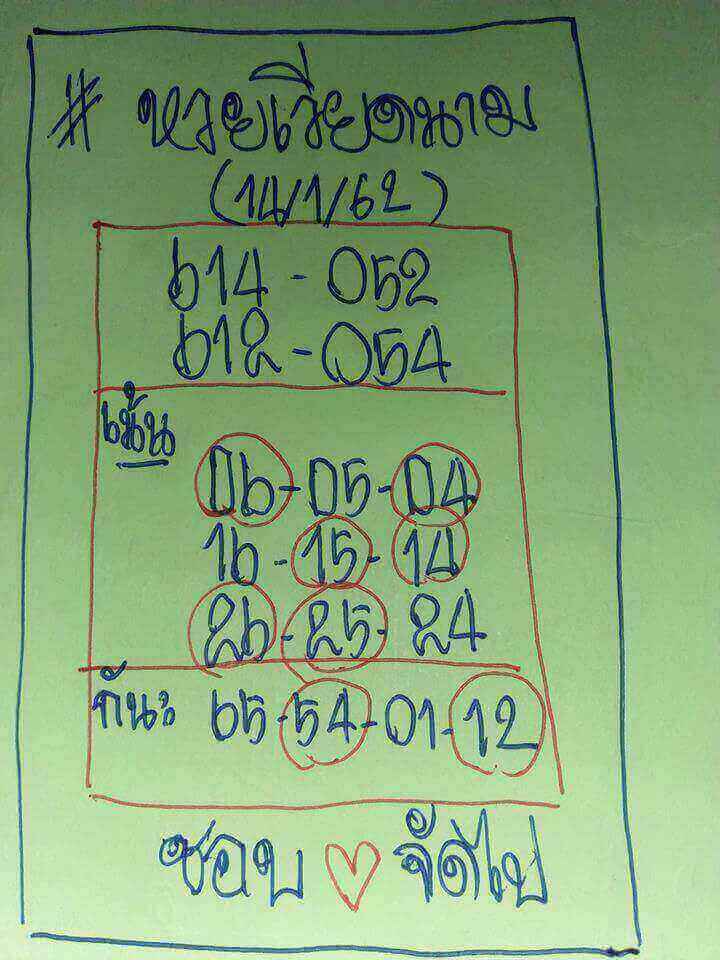 # หวยเวียดนาม
(14/1/62)
614 - 052
612 - 054
เน้น
06 - 05 - 04
16 - 15 - 14
26 - 25 - 24
กัน: 65 - 54 - 01 - 12
ชอบ ♡ จัดไป